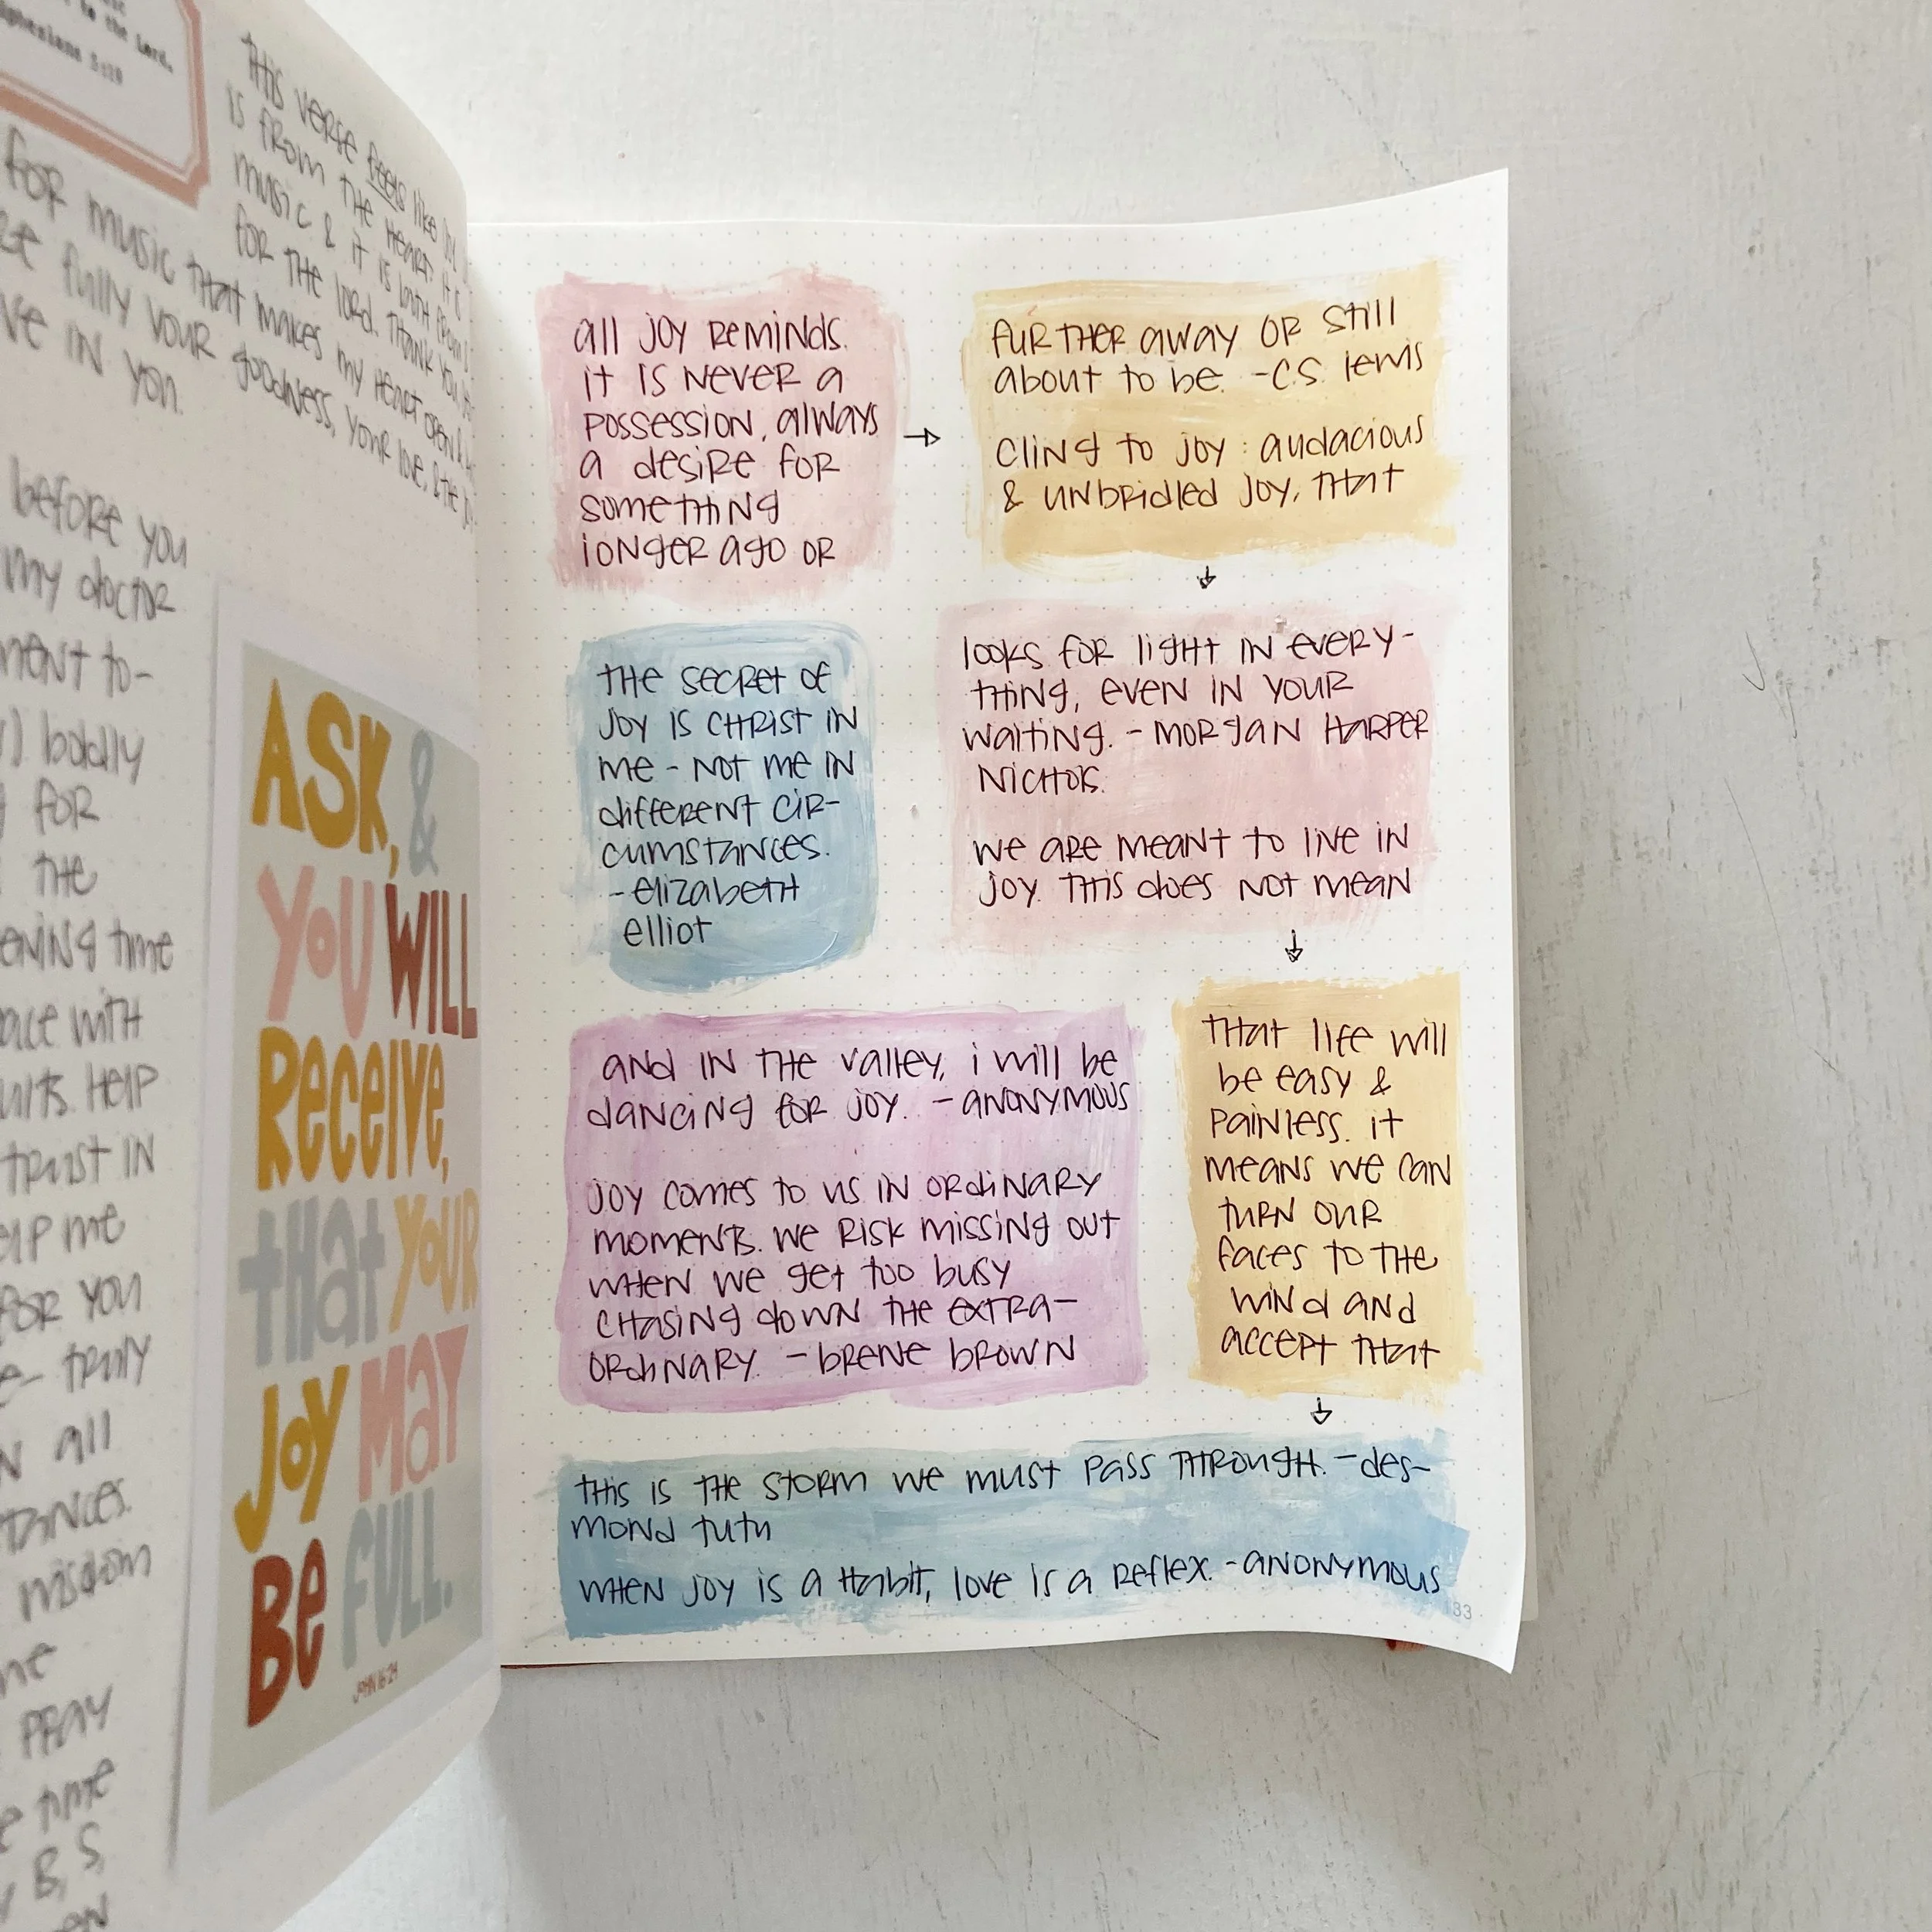 to the Lord.
Ephesians 5:19
THIS VERSE feels like
IS FROM THE HEART. IT IS
MUSIC & IT IS both from
for THE LORD. THANK YOU
for music that makes my heart open &
fully your goodness, your love, & the
IN you.
before you
my doctor
to-
boldly
for
THE
time
with
HELP
trust IN
me
for you
truly
all
wisdom
PRAY
time
B, S,
ASK, &
YOU WILL
RECEIVE,
THAT YOUR
JOY MAY
BE FULL.
JOHN 16:24
all joy reminds.
it is never a
possession, always
a desire for
something
longer ago or
→
further away or still
about to be. -C.S. lewis
cling to joy: audacious
& unbridled joy, that
↓
looks for light in every-
thing, even in your
waiting. - Morgan Harper
Nichols.
we are meant to live in
joy. this does not mean
↓
the secret of
joy is Christ in
me - not me in
different cir-
cumstances.
- elizabeth
elliot
and in the valley, i will be
dancing for joy. - anonymous
joy comes to us in ordinary
moments. we risk missing out
when we get too busy
chasing down the extra-
ordinary. - brene brown
that life will
be easy &
painless. it
means we can
turn our
faces to the
wind and
accept that
↓
this is the storm we must pass through. - des-
mond tutu
when joy is a habit, love is a reflex. - anonymous
133